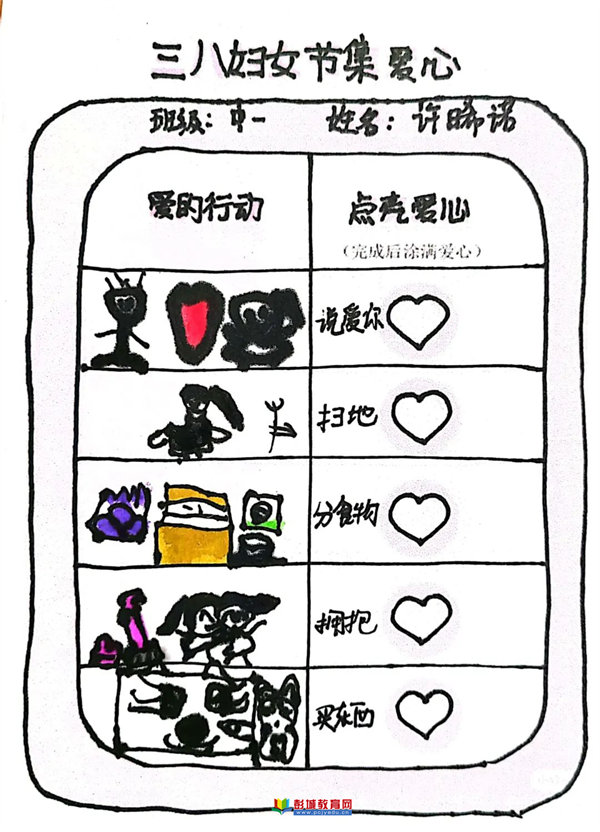 三八妇女节集爱心
班级：中一 姓名：许晞诺
爱的行动 点亮爱心
（完成后涂满爱心）
说爱你
扫地
分食物
拥抱
买东西
彭城教育网
www.pcjyedu.cn